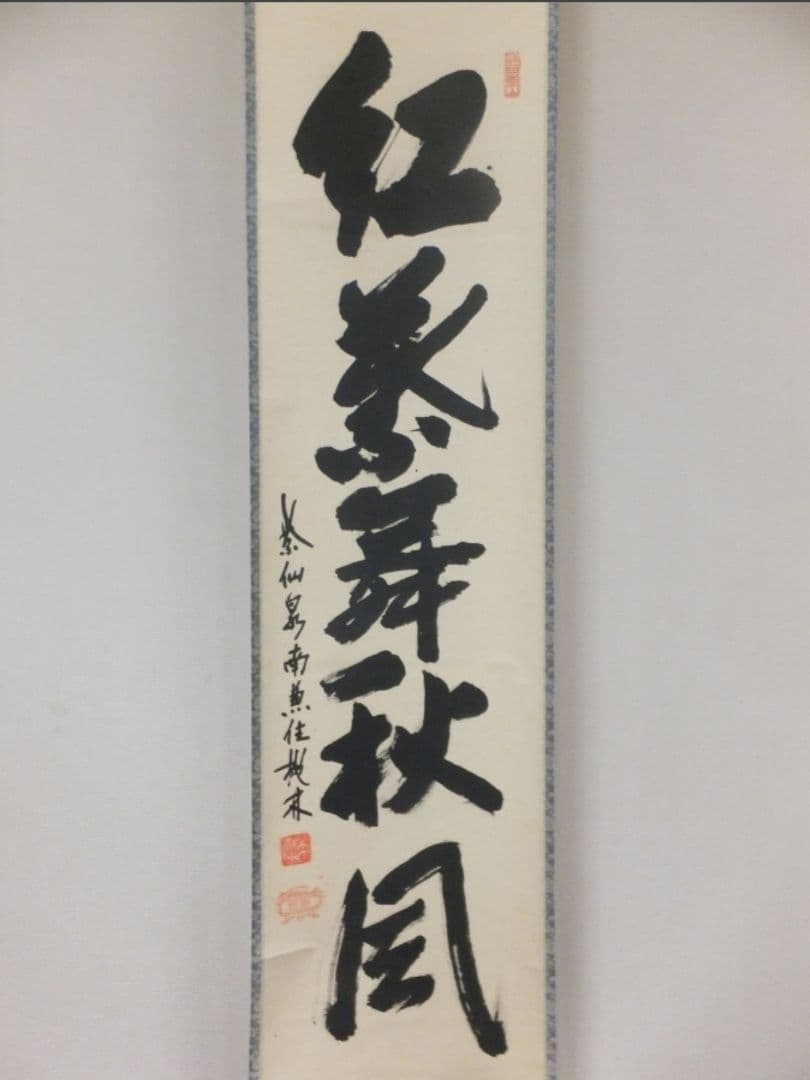 紅葉舞秋風
紫仙泉南兼住戝林